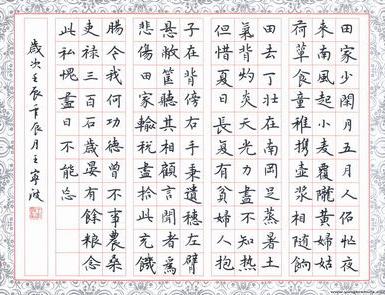 田家少閑月五月人倍忙夜
來南風起小麥覆隴黃婦姑
荷簞食童稚攜壺漿相隨餉
田去丁壯在南岡足蒸暑土
氣背灼炎天光力盡不知熱
但惜夏日長復有貧婦人抱
子在背傍右手秉遺穗左臂
懸敝筐聽其相顧言聞者爲
悲傷田家輸稅盡拾此充饑
腸今我何功德曾不事農桑
吏祿三百石歲晏有餘糧念
此私愧盡日不能忘
歲次壬辰年辰月王寧波